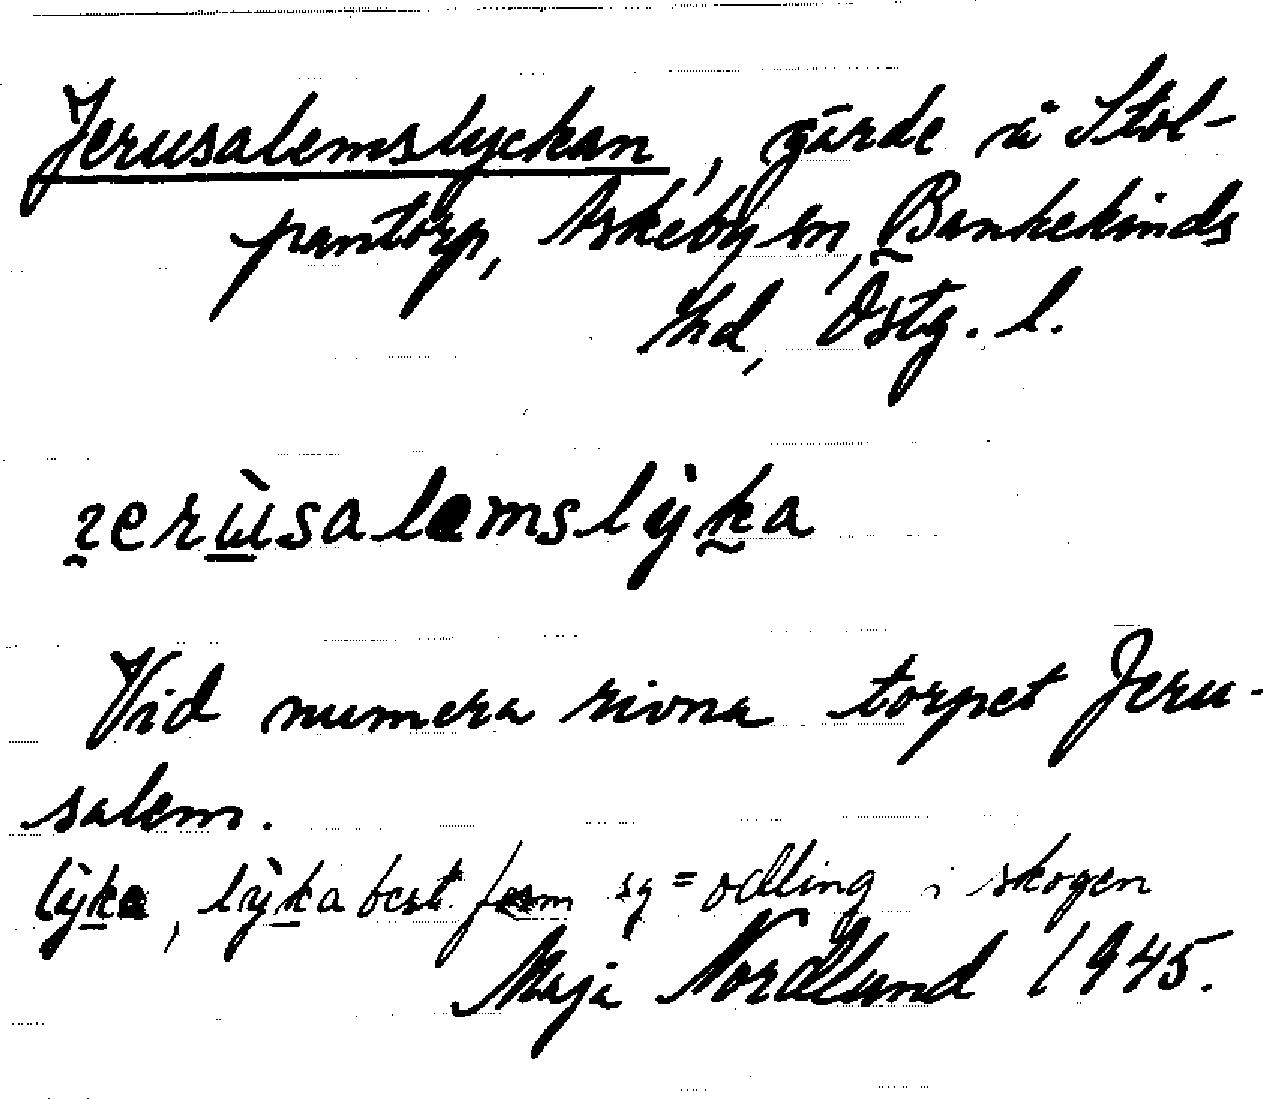 Jerusalemslyckan, gärde å Stol-
pantorp, Askeby sn, Bankekinds
hd, Östg. l.
ɪerùsalemslyka
Vid numera rivna torpet Jeru-
salem.
lỳka, lỳka best. form sg = odling i skogen
Maja Nordlund 1945.